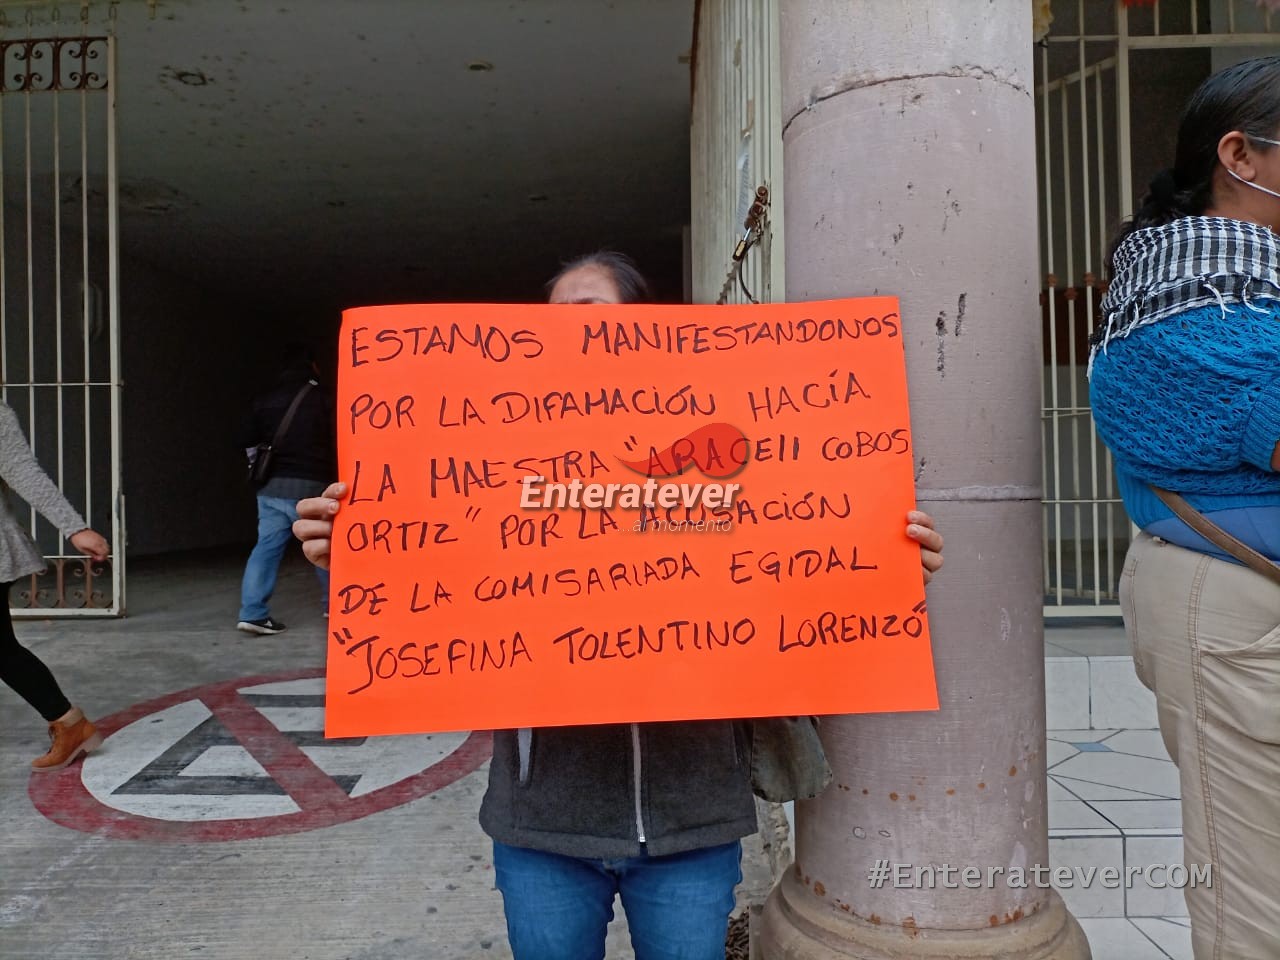 ESTAMOS MANIFESTANDONOS
POR LA DIFAMACIÓN HACÍA
LA MAESTRA "ARACEII COBOS
ORTIZ" POR LA ACUSACIÓN
DE LA COMISARIADA EGIDAL
"JOSEFINA TOLENTINO LORENZO"
Enteratever
...al momento
#EnterateverCOM